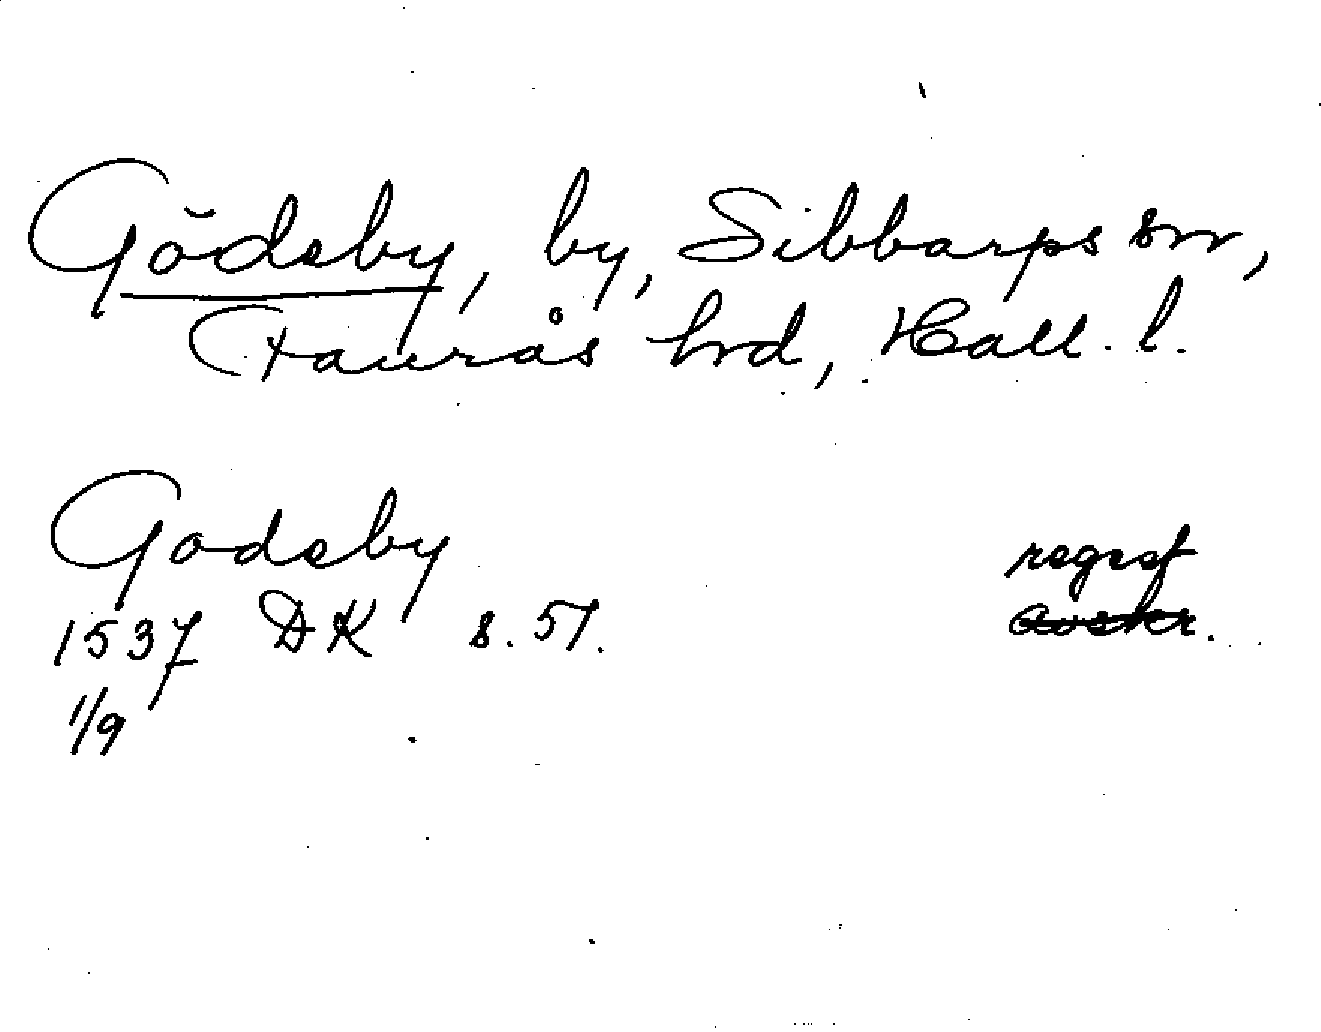 Gödsby, by, Sibbarps sn,
Faurås hrd, Hall. l.
Godsby
1537 DK s. 51. regest
1/9 avskr.